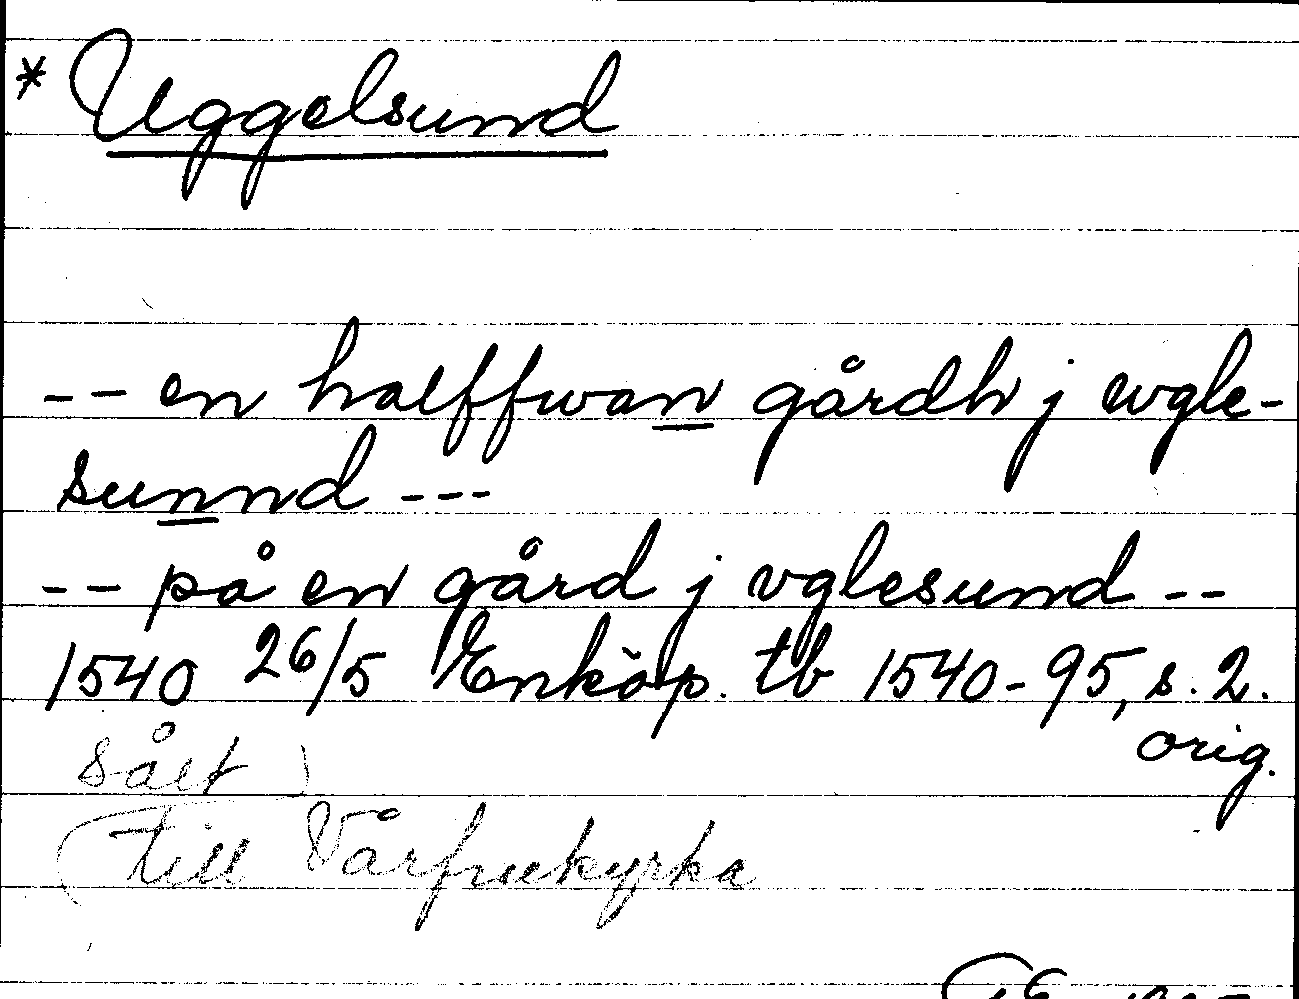 * Uggelsund
-- en halffwan gårdh j wgle-
sunnd ---
-- på en gård j vglesund --
1540 26/5 Enköp. tb 1540-95, s. 2.
orig.
sålt )
(till Vårfrukyrka